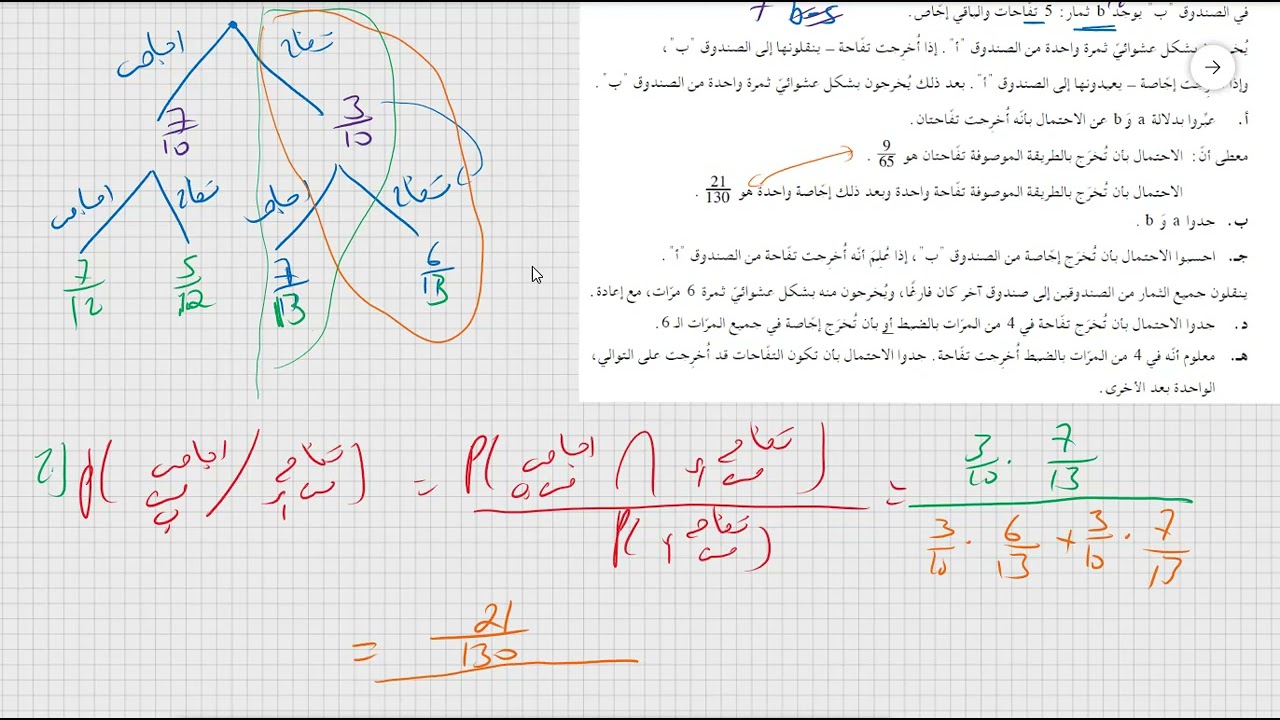 في الصندوق "ب" يوجد b ثمار: 5 تفّاحات والباقي إجّاص.
7 b-5
بشكل عشوائيّ ثمرة واحدة من الصندوق "أ". إذا أُخرِجت تفّاحة – ينقلونها إلى الصندوق "ب"،
إجّاصة – يعيدونها إلى الصندوق "أ". بعد ذلك يُخرجون بشكل عشوائيّ ثمرة واحدة من الصندوق "ب".
أ. عبّروا بدلالة a وَ b عن الاحتمال بأنّه أُخرِجت تفّاحتان.
معطى أنّ: الاحتمال بأن تُخرَج بالطريقة الموصوفة تفّاحتان هو 9/65 .
الاحتمال بأن تُخرَج بالطريقة الموصوفة تفّاحة واحدة وبعد ذلك إجّاصة واحدة هو 21/130 .
ب. حدوا a وَ b .
جـ. احسبوا الاحتمال بأن تُخرَج إجّاصة من الصندوق "ب"، إذا عُلِمَ أنّه أُخرِجت تفّاحة من الصندوق "أ".
ينقلون جميع الثمار من الصندوقين إلى صندوق آخر كان فارغًا، ويُخرجون منه بشكل عشوائيّ ثمرة 6 مرّات، مع إعادة.
د. حدوا الاحتمال بأن تُخرَج تفّاحة في 4 من المرّات بالضبط أو بأن تُخرَج إجّاصة في جميع المرّات الـ 6.
هـ. معلوم أنّه في 4 من المرّات بالضبط أُخرِجت تفّاحة. حدوا الاحتمال بأن تكون التفّاحات قد أُخرِجت على التوالي،
الواحدة بعد الأخرى.
اجاص تفاح
7/10 3/10
اجاص تفاح اجاص تفاح
7/12 5/12 7/13 6/13
ج) P( اجاص من ب / تفاح من أ ) = P( اجاص من ب ∩ تفاح من أ ) / P( تفاح من أ ) = 3/10 · 7/13 / 3/10 · 6/13 + 3/10 · 7/13
= 21/130